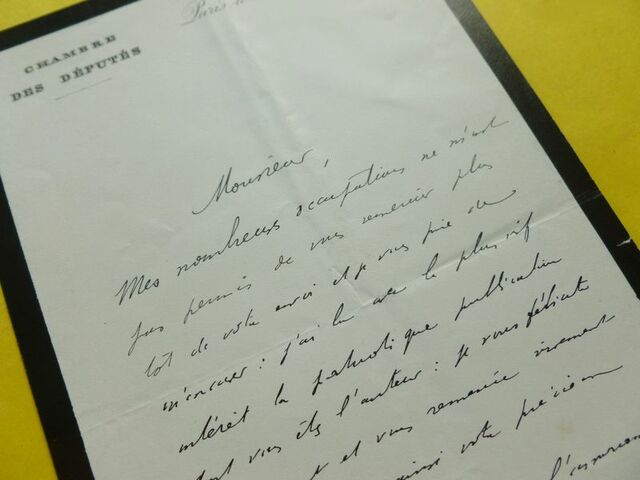 Paris
CHAMBRE
DES DÉPUTÉS
Monsieur,
Mes nombreux occupations ne m'ont
pas permis de vous remercier plus
tôt de votre envoi et je vous prie de
m'excuser : j'ai lu avec le plus vif
intérêt la patriotique publication
dont vous êtes l'auteur : je vous félicite
et vous remercie vivement
ainsi votre précieux
l'assurance